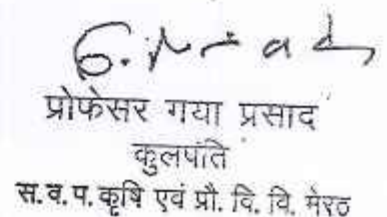 प्रोफेसर गया प्रसाद
कुलपति
स. व. प. कृषि एवं प्रौ. वि. वि. मेरठ